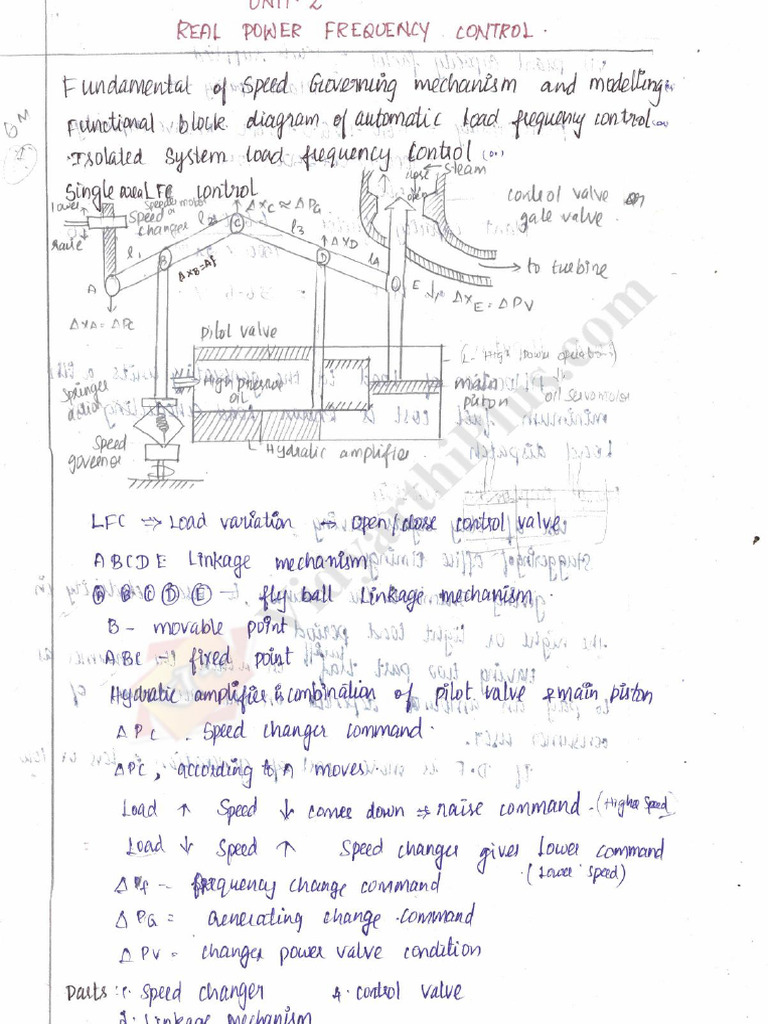 UNIT-2
REAL POWER FREQUENCY CONTROL.
Fundamental of Speed Governing mechanism and modelling (or)
Functional block diagram of automatic load frequency control (or)
Isolated System load frequency control (or)
Single area LFC control
lower
raise
speeder motor
or
Speed
changer
l1
l2
l3
l4
A
B
C
D
E
ΔXC ≈ ΔPG
ΔXD
ΔXB = Δf
ΔXA = ΔPC
ΔXE = ΔPV
close
open
steam
control valve or
gate valve
to turbine
Pilot valve
High pressure
oil
main
piston
oil servomotor
Hydralic amplifier
Speed
governor
LFC ⇒ Load variation → open/close control valve
ABCDE Linkage mechanism
A B C D E - fly ball Linkage mechanism.
B - movable point
ABC - fixed point
Hydratic amplifier is combination of pilot valve & main piston
ΔPC . Speed changer command.
ΔPC, according to A moves
Load ↑ Speed ↓ comes down ⇒ raise command - (Higher Speed)
Load ↓ Speed ↑ Speed changer gives lower command
(Lower speed)
ΔPf - frequency change command
ΔPG = Generating change command
ΔPV = changer power valve condition
Parts: 1. Speed changer 4. control valve
2. Linkage mechanism
vidyarthiplus.com